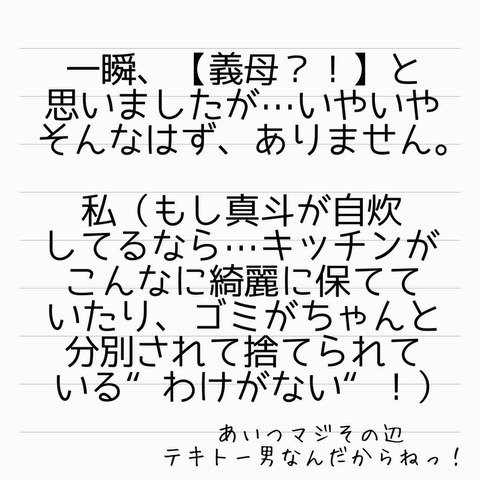 一瞬、【義母？！】と
思いましたが…いやいや
そんなはず、ありません。
私（もし真斗が自炊
してるなら…キッチンが
こんなに綺麗に保てて
いたり、ゴミがちゃんと
分別されて捨てられて
いる“わけがない“！）
あいつマジその辺
テキトー男なんだからねっ！